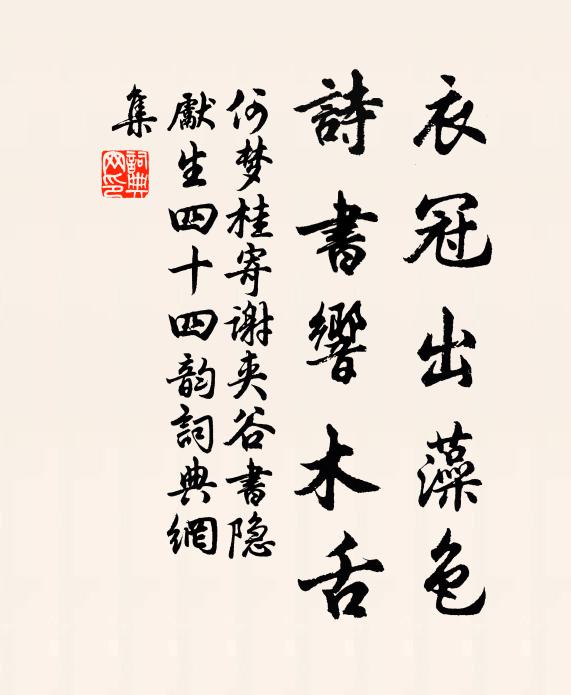 衣冠出藻色
詩書響木舌
何梦桂寄谢夹谷書隐
獻生四十四韵詞典網
集
詞典
网印